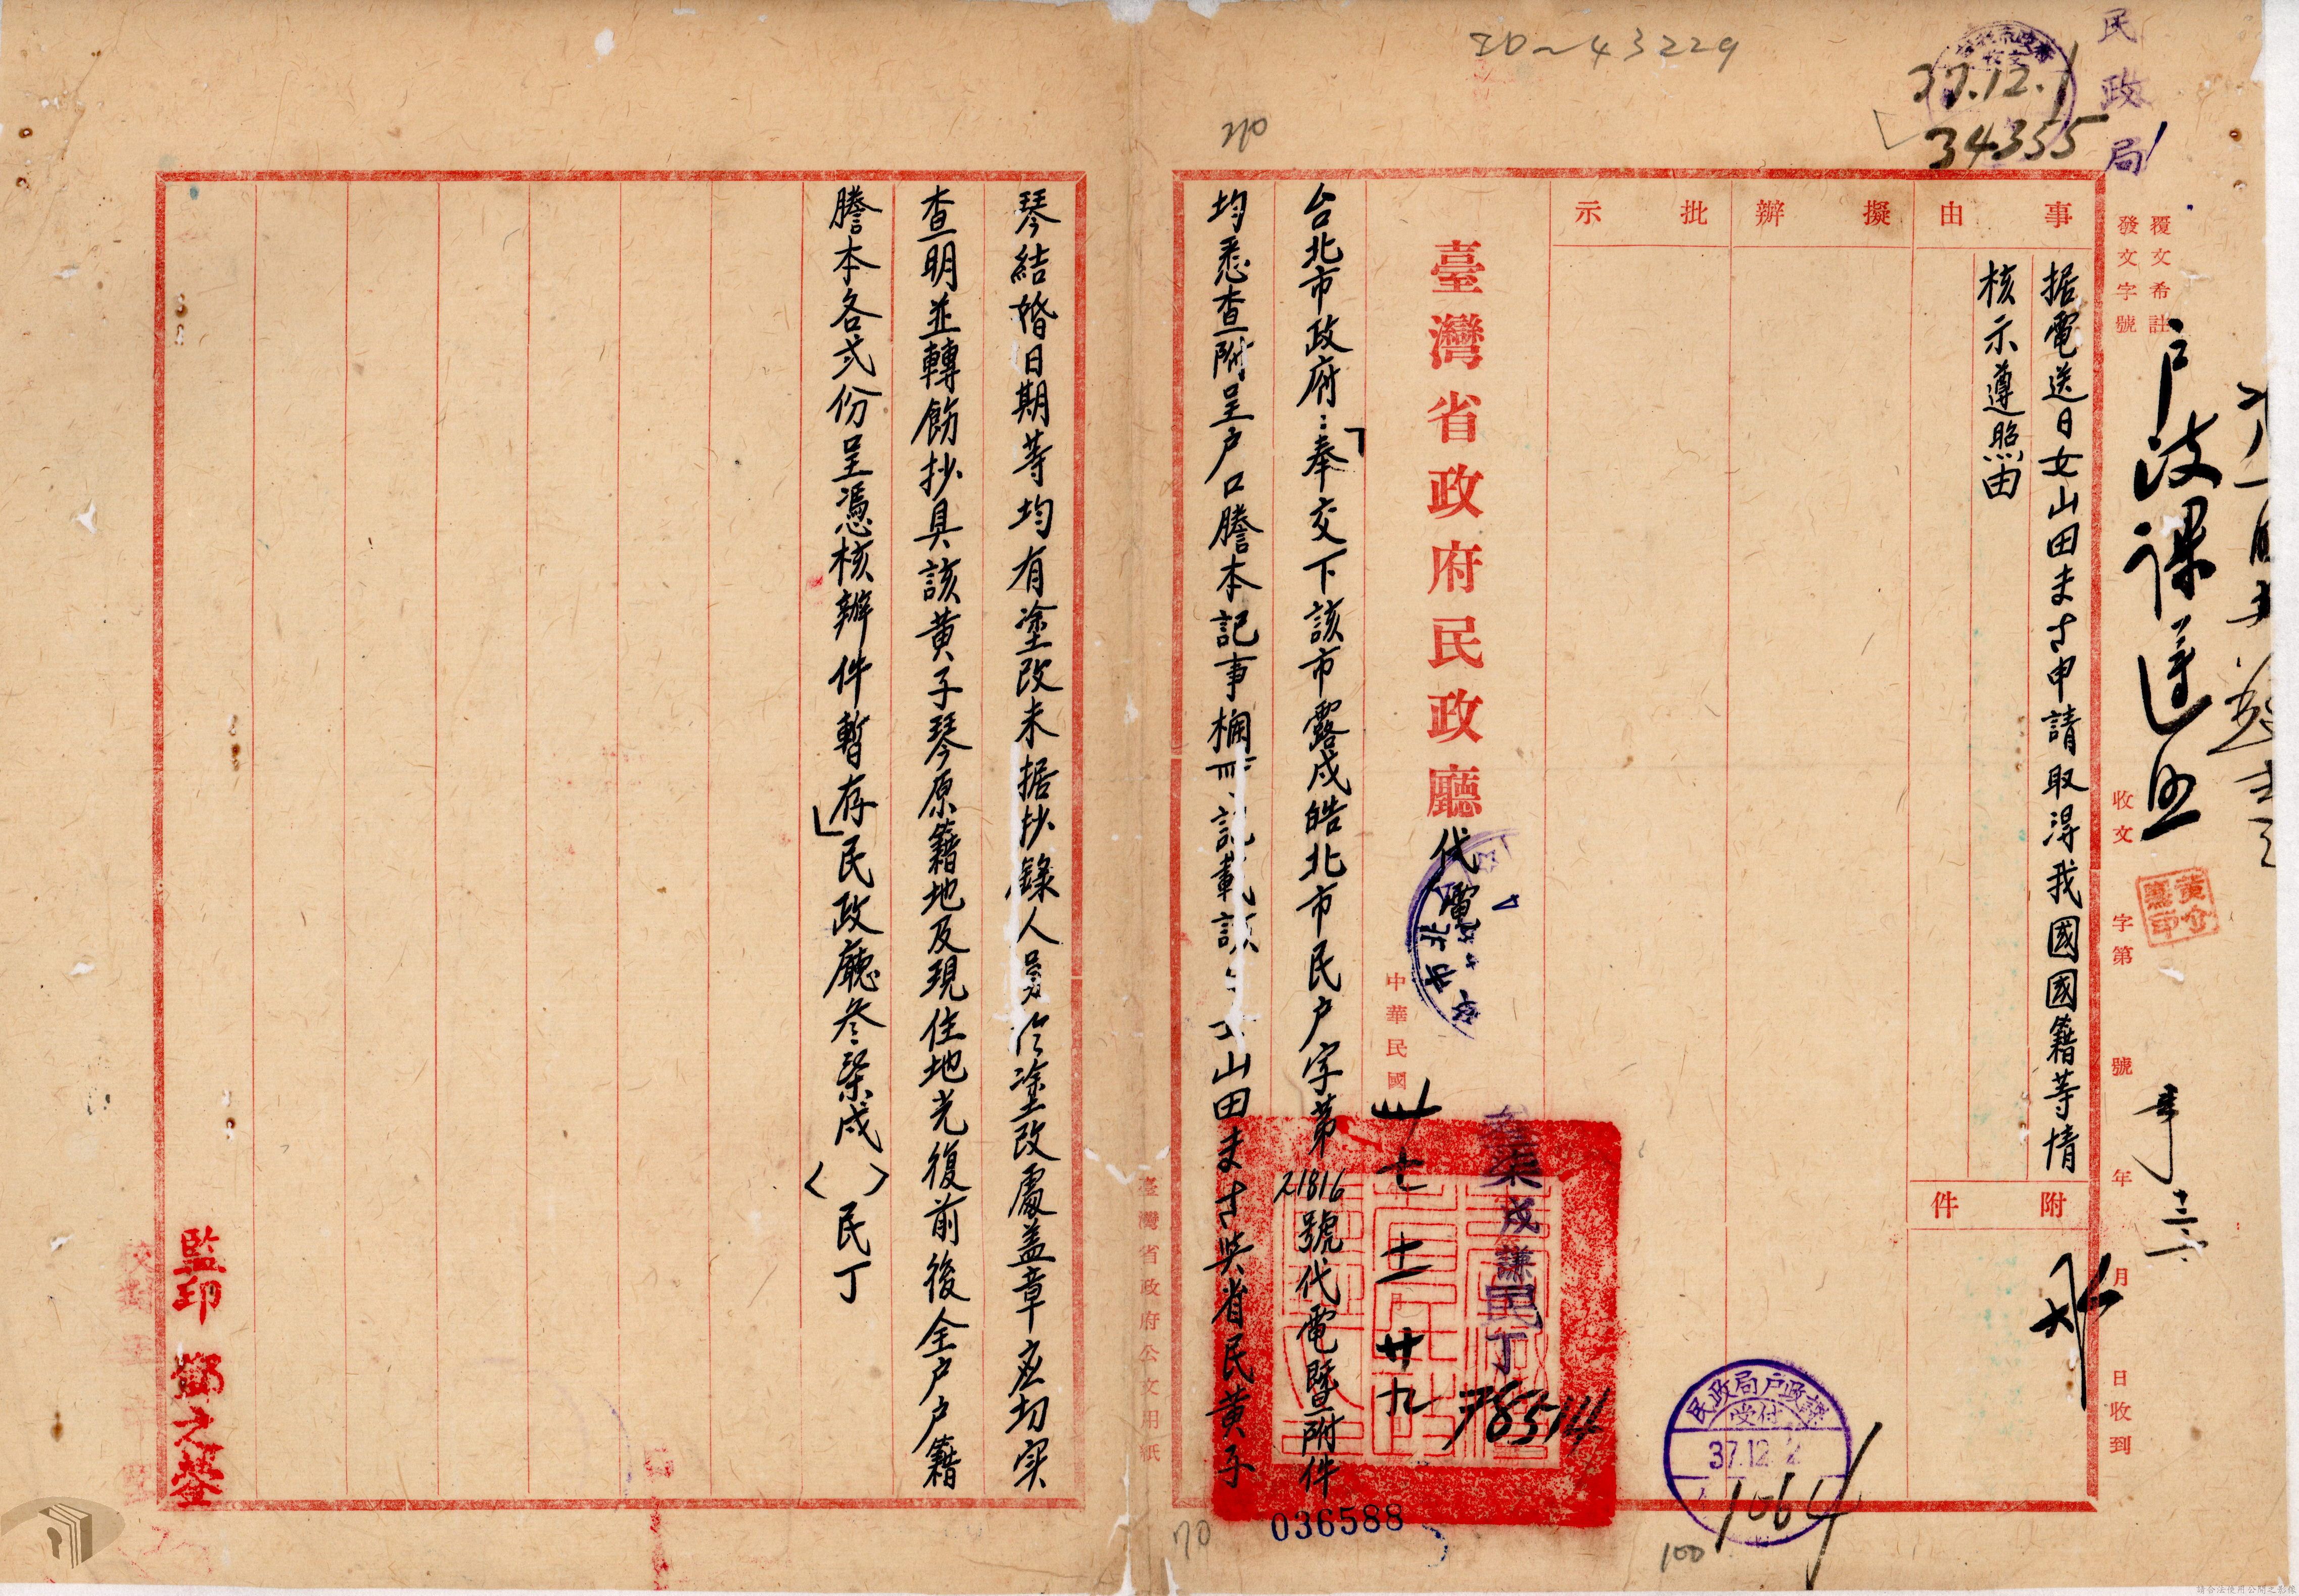 民政局
37.12.1
34355
ID~43229
210
覆文希註
發文字號
收文 字第 號 年 月 日收到
事由
擬辦
批示
附件
据電送日女山田まさ申請取得我國國籍等情
核示遵照由
臺灣省政府民政廳代電
中華民國卅七 十一 廿九
戌謙民丁
78514
台北市政府：「奉交下該市露戌皓北市民户字第21816號代電暨附件
均悉查附呈户口謄本記事欄 記載該 女山田まさ與省民黄子
琴結婚日期等均有塗改未据抄錄人員於塗改處盖章应切实
查明並轉飭抄具該黄子琴原籍地及現住地光復前後全户户籍
謄本各弍份呈憑核辦件暫存」民政廳叁 戌（ ）民丁
臺灣省政府公文用紙
監印 鄧之
民政局戶政課
受付
37.12.2
1064
036588
70
100